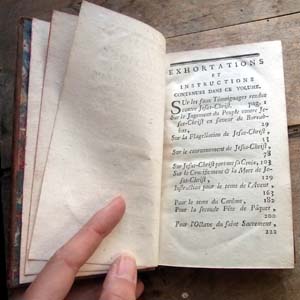 EXHORTATIONS
ET
INSTRUCTIONS
CONTENUES DANS CE VOLUME.
Sur les faux Témoignages rendus
contre Jesus-Christ. pag. 1
Sur le Jugement du Peuple contre Je-
sus-Christ en faveur de Barrab-
bas, 29
Sur la Flagellation de Jesus-Christ,
53
Sur le couronnement de Jesus-Christ,
78
Sur Jesus-Christ portant sa Croix, 103
Sur le Crucifiement & la Mort de Je-
sus-Christ, 129
Instruction pour le tems de l'Avent,
163
Pour le tems du Carême, 182
Pour la seconde Fête de Pâques,
200
Pour l'Octave du Saint Sacrement,
222